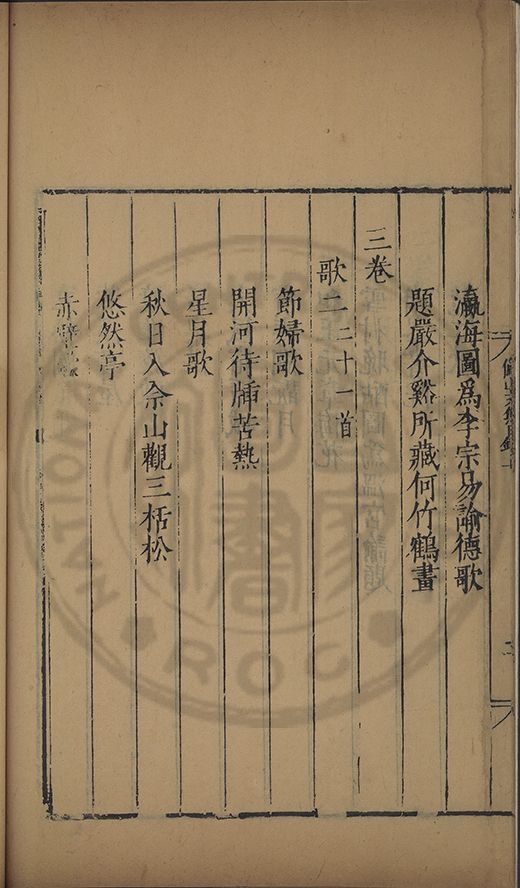 瀛海圖爲李宗易諭德歌
題嚴介谿所藏何竹鶴畫
三卷
歌二 二十一首
節婦歌
開河待牐苦熱
星月歌
秋日入佘山觀三栝松
悠然亭
赤壁